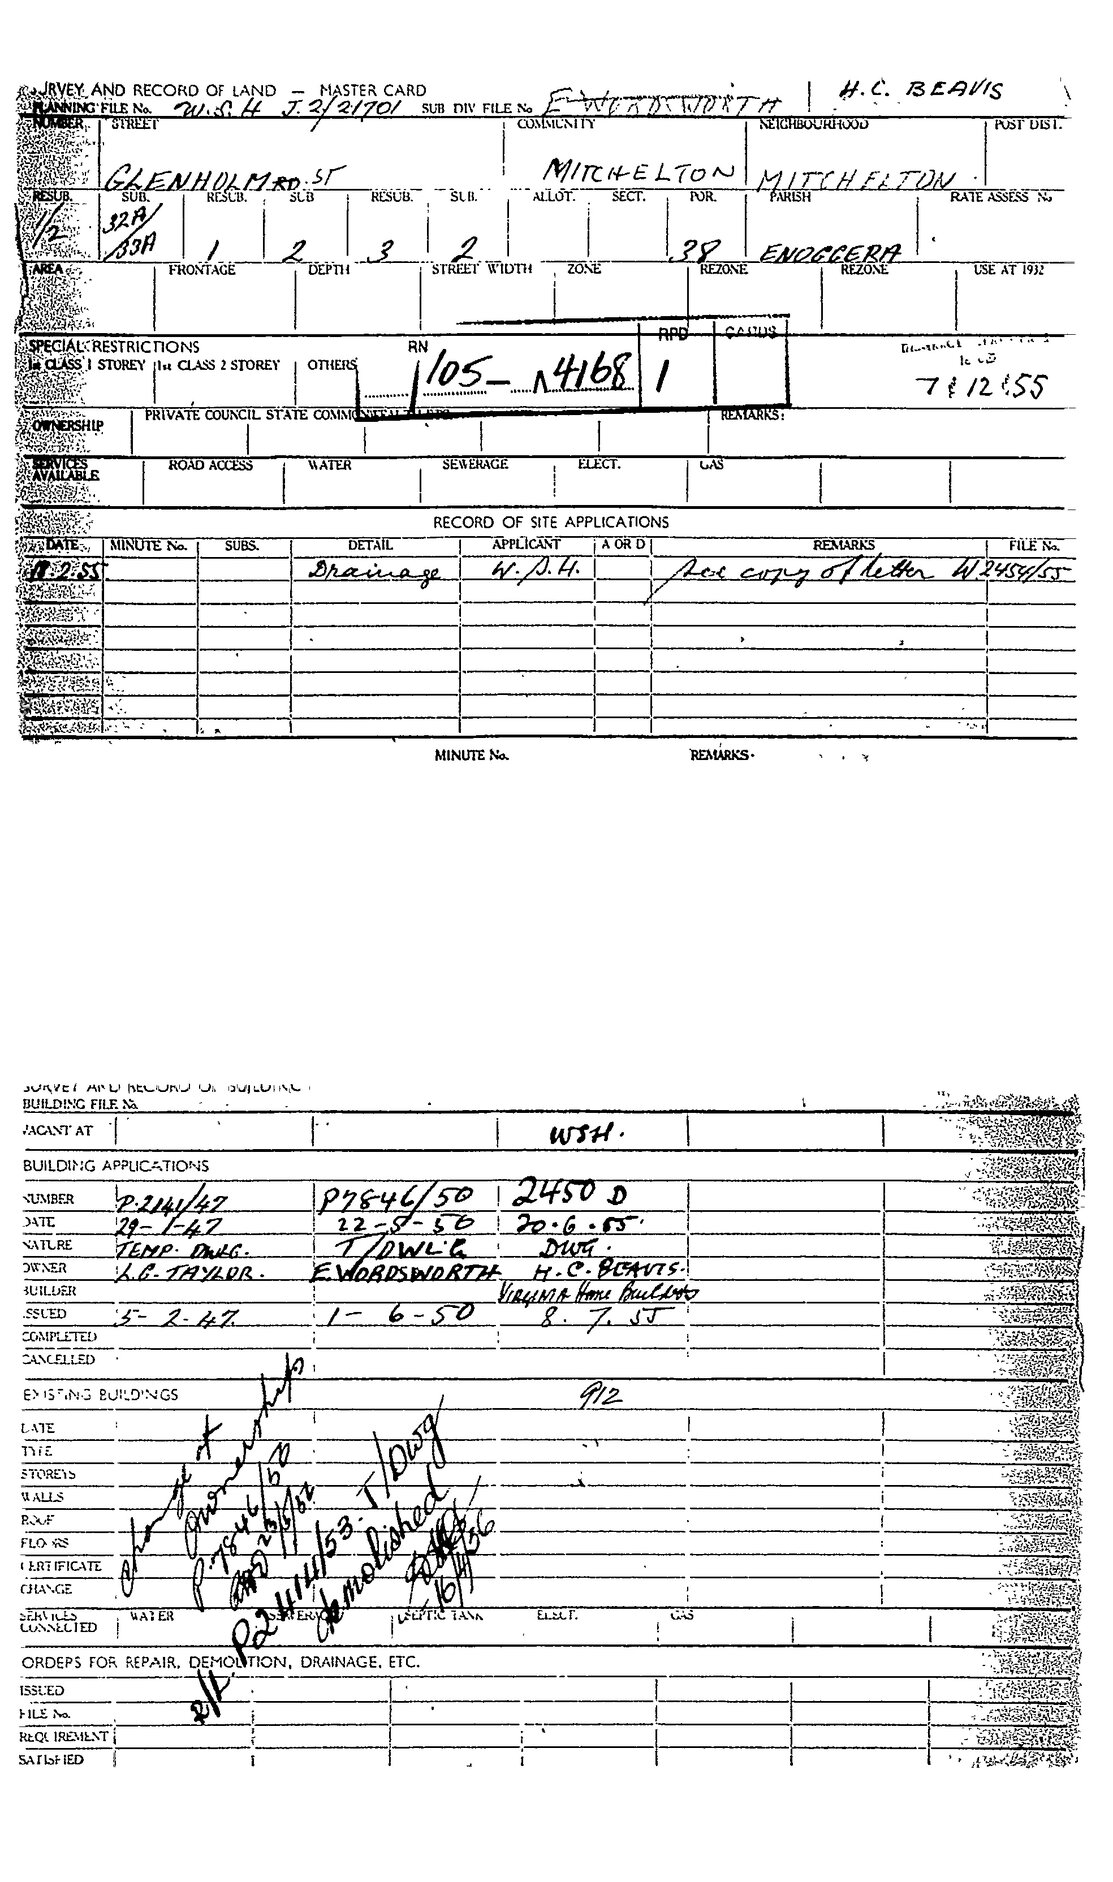 SURVEY AND RECORD OF LAND — MASTER CARD
PLANNING FILE No. W.S.H J.2/21701 SUB DIV FILE No E WORDSWORTH H.C. BEAVIS
NUMBER STREET COMMUNITY NEIGHBOURHOOD POST DIST.
GLENHOLM RD. ST MITCHELTON MITCHELTON
RESUB. SUB. RESUB. SUB RESUB. SUB. ALLOT. SECT. POR. PARISH RATE ASSESS No
1/2 32A/33A 1 2 3 2 38 ENOGGERA
AREA FRONTAGE DEPTH STREET WIDTH ZONE REZONE REZONE USE AT 1932
SPECIAL RESTRICTIONS RN RPD CARDS
1st CLASS 1 STOREY 1st CLASS 2 STOREY OTHERS
105 - 4168 1
7 12 55
PRIVATE COUNCIL STATE REMARKS:
OWNERSHIP
SERVICES AVAILABLE ROAD ACCESS WATER SEWERAGE ELECT. GAS
RECORD OF SITE APPLICATIONS
DATE MINUTE No. SUBS. DETAIL APPLICANT A OR D REMARKS FILE No.
18.2.55 Drainage W.S.H. See copy of letter W2454/55
MINUTE No. REMARKS.
SURVEY AND RECORD OF BUILDING
BUILDING FILE No.
VACANT AT WSH.
BUILDING APPLICATIONS
NUMBER P.2141/47 P7846/50 2450 D
DATE 29-1-47 22-5-50 20.6.55.
NATURE TEMP. DWLG. T/DWL'G DWG.
OWNER L.G. TAYLOR. E.WORDSWORTH H.C. BEAVIS.
BUILDER Virginia Home Builders
ISSUED 5-2-47. 1-6-50 8.7.55
COMPLETED
CANCELLED
EXISTING BUILDINGS 912
DATE
TYPE
STOREYS
WALLS
ROOF
FLOORS
CERTIFICATE
CHANGE
change of
Ownership
P.7846/50
P2414/53. T/Dwg
demolished
16/4/56
SERVICES CONNECTED WATER SEPTIC TANK ELECT. GAS
ORDERS FOR REPAIR, DEMOLITION, DRAINAGE, ETC.
ISSUED
FILE No.
REQUIREMENT
SATISFIED